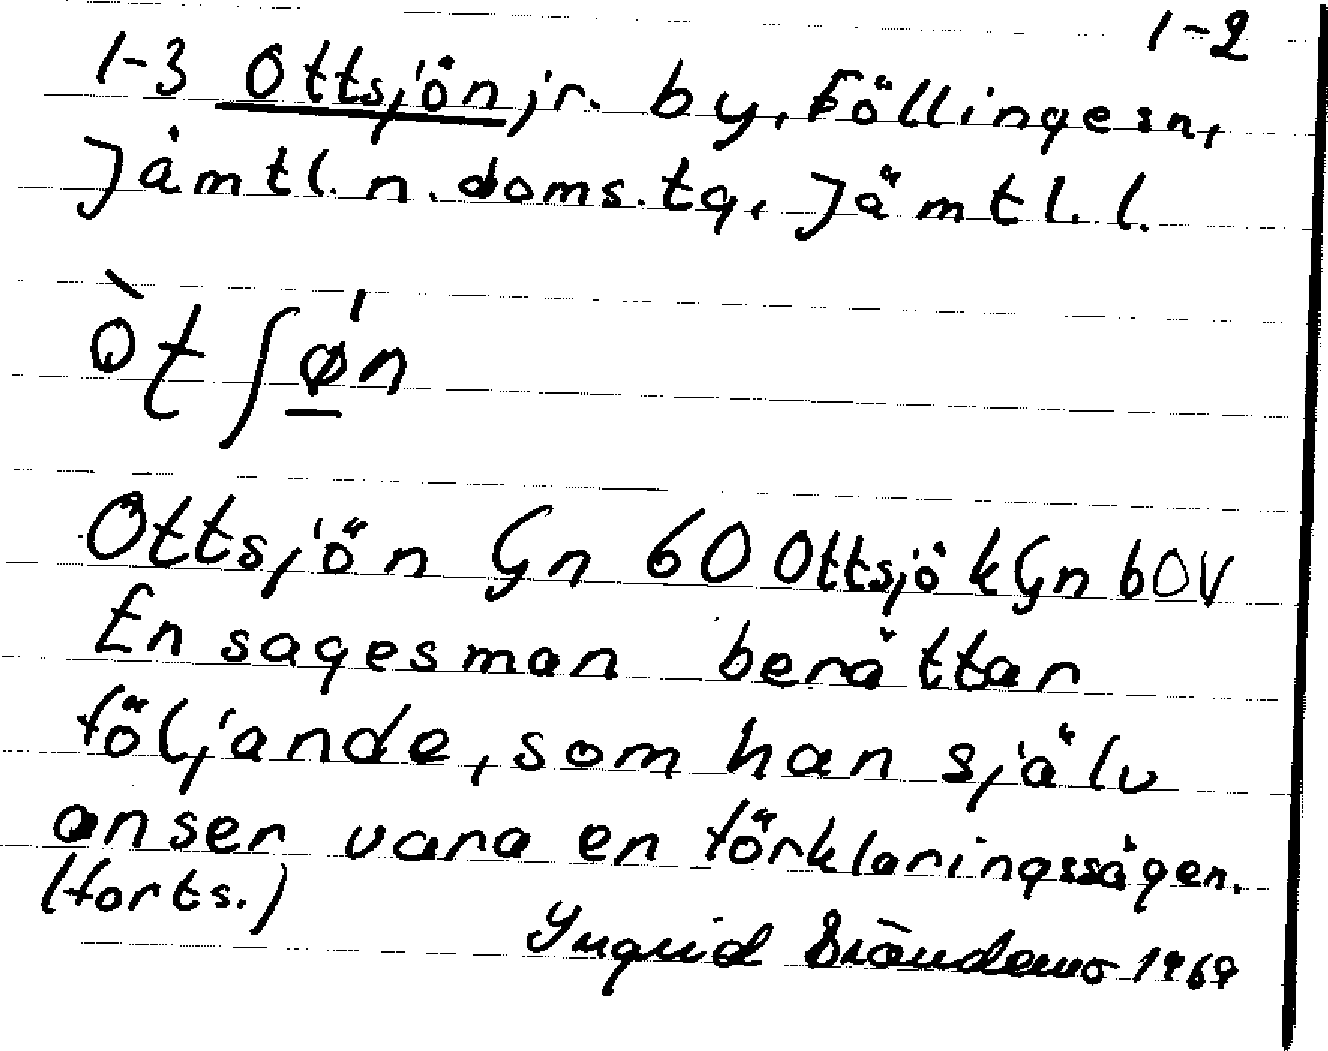 1-2
1-3 Ottsjön, jr. by, Föllingesn,
Jämtl. n. doms. tg, Jämtl. l.
òt ʃø̱'n
Ottsjön Gn 60 Ottsjö k Gn 60 V
En sagesman berättar
följande, som han själv
anser vara en förklaringssägen.
(forts.)
Ingrid Brändemo 1969